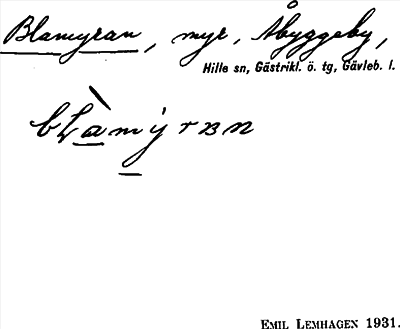 Blamyran, myr, Åbyggeby,
Hille sn, Gästrikl. ö. tg, Gävleb. l.
EMIL LEMHAGEN 1931.